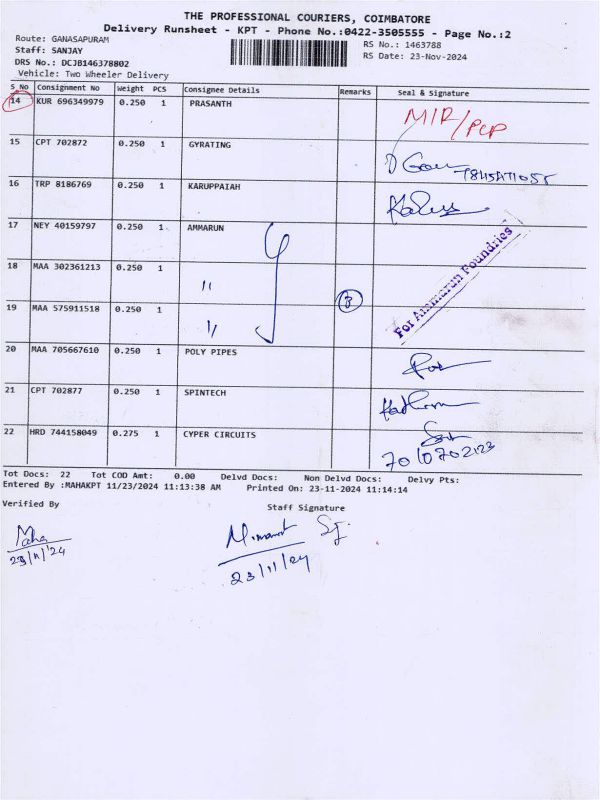 THE PROFESSIONAL COURIERS, COIMBATORE
Delivery Runsheet - KPT - Phone No.:0422-3505555 - Page No.:2
Route: GANASAPURAM
RS No.: 1463788
Staff: SANJAY
RS Date: 23-Nov-2024
DRS No.: DCJB146378802
Vehicle: Two Wheeler Delivery
S No Consignment No Weight PCS Consignee Details Remarks Seal & Signature
14 KUR 696349979 0.250 1 PRASANTH MIR/PCP
15 CPT 702872 0.250 1 GYRATING
16 TRP 8186769 0.250 1 KARUPPAIAH
17 NEY 40159797 0.250 1 AMMARUN
18 MAA 302361213 0.250 1 "
19 MAA 575911518 0.250 1 " 3 For Ammarun Foundries
20 MAA 705667610 0.250 1 POLY PIPES
21 CPT 702877 0.250 1 SPINTECH
22 HRD 744158049 0.275 1 CYPER CIRCUITS
7010702123
Tot Docs: 22 Tot COD Amt: 0.00 Delvd Docs: Non Delvd Docs: Delvy Pts:
Entered By :MAHAKPT 11/23/2024 11:13:38 AM Printed On: 23-11-2024 11:14:14
Verified By Staff Signature
Maha
23/11/24
23/11/24